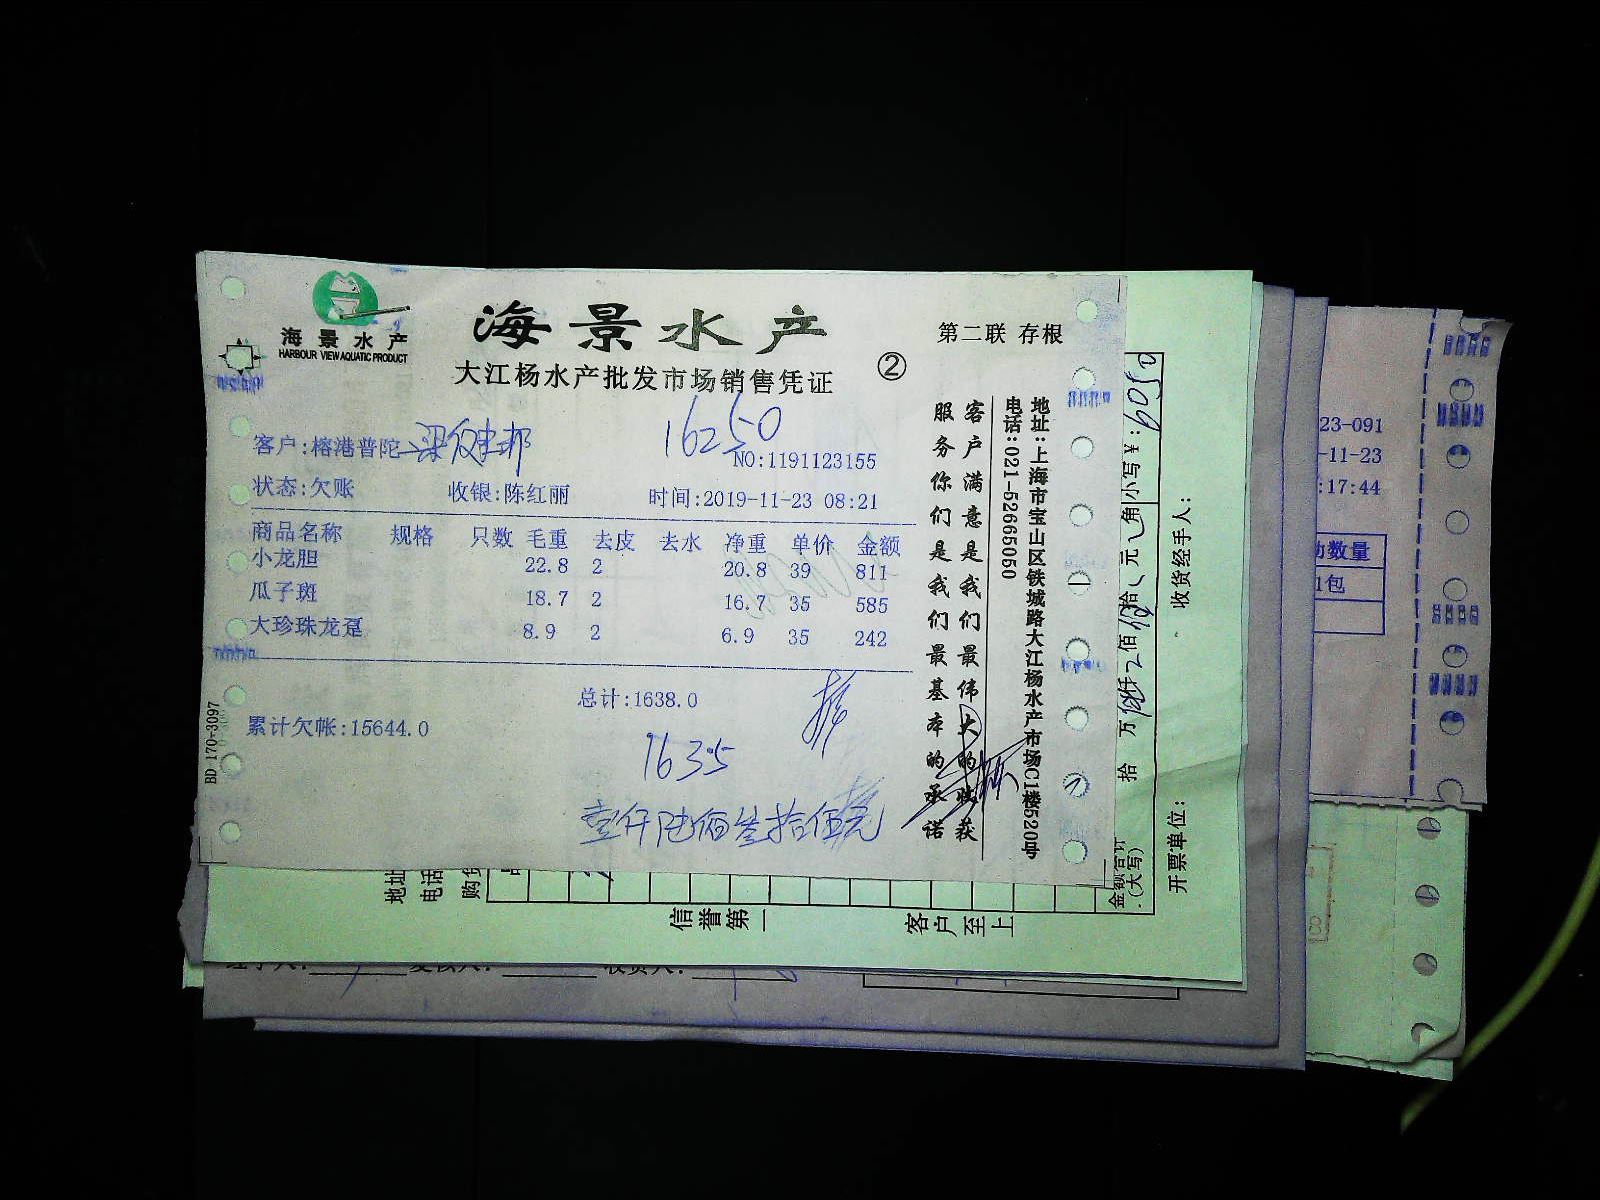 海景水产
HARBOUR VIEW AQUATIC PRODUCT
海景水产
大江杨水产批发市场销售凭证
②
第二联 存根
16250
客户:榕港普陀
NO:1191123155
状态:欠账 收银:陈红丽 时间:2019-11-23 08:21
商品名称 规格 只数 毛重 去皮 去水 净重 单价 金额
小龙胆 22.8 2 20.8 39 811
瓜子斑 18.7 2 16.7 35 585
大珍珠龙趸 8.9 2 6.9 35 242
总计:1638.0
累计欠帐:15644.0
1635
壹仟陆佰叁拾伍元
BD 170-3097
客户满意是我们最伟大的收获
服务你们是我们最基本的承诺
地址:上海市宝山区铁城路大江杨水产市场C1楼520号
电话:021-52665050
小写¥:6050
金额合计
(大写)
拾 万 仟 佰 拾 元 角
收货经手人:
开票单位:
地址
电话
购货
信誉第一
客户至上
23-091
-11-23
:17:44
数量
1包